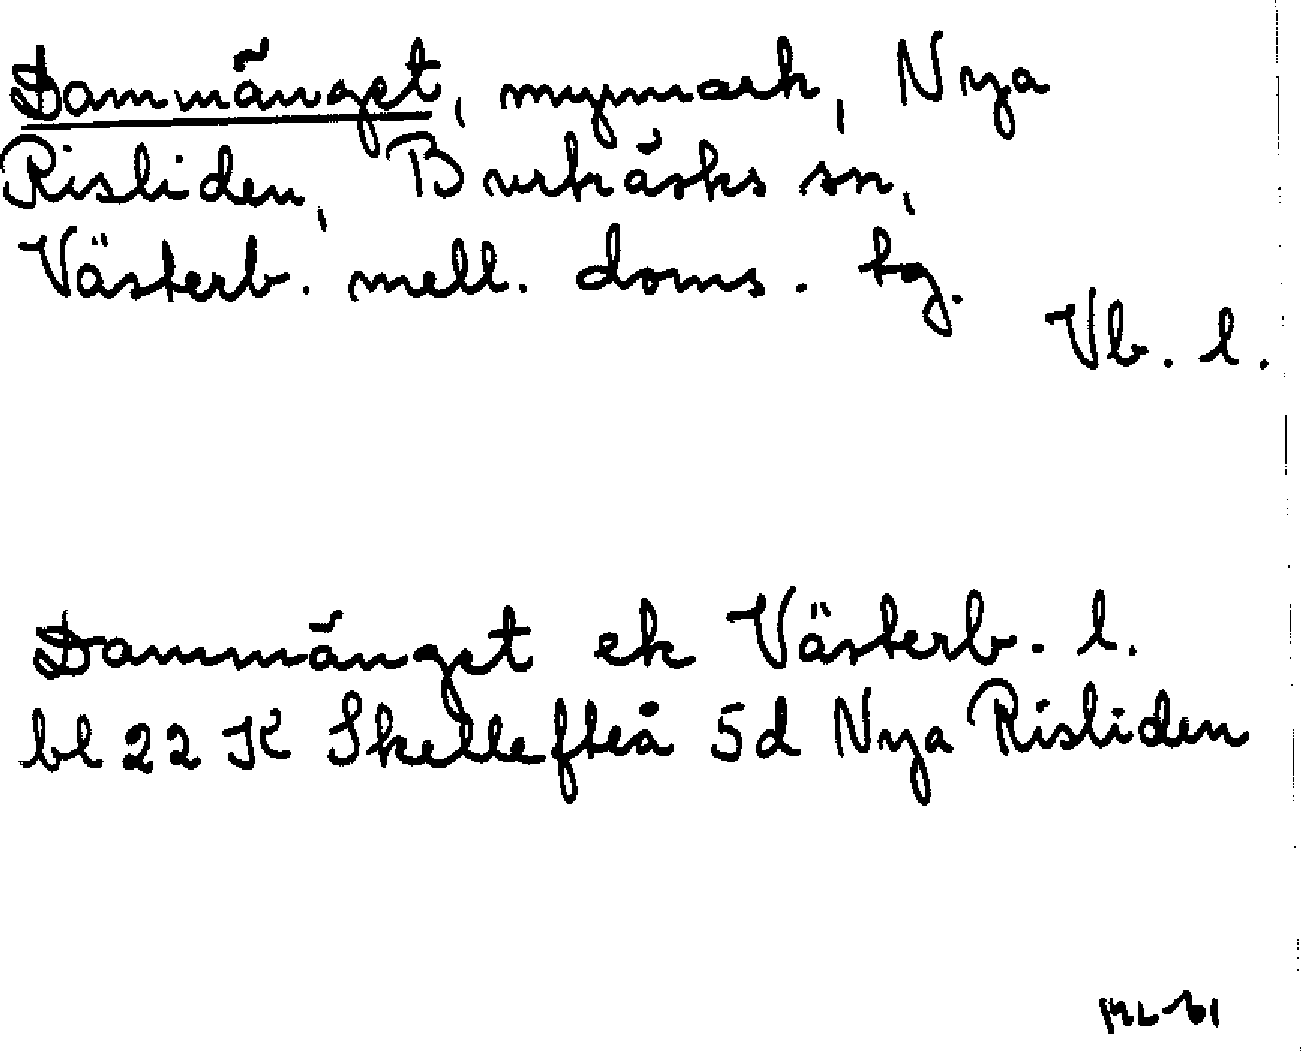 Dammänget, myrmark, Nya
Risliden, Burträsks sn,
Västerb. mell. doms. tg.
Vb. l.
Dammänget ek Västerb. l.
bl 22 K Skellefteå 5d Nya Risliden